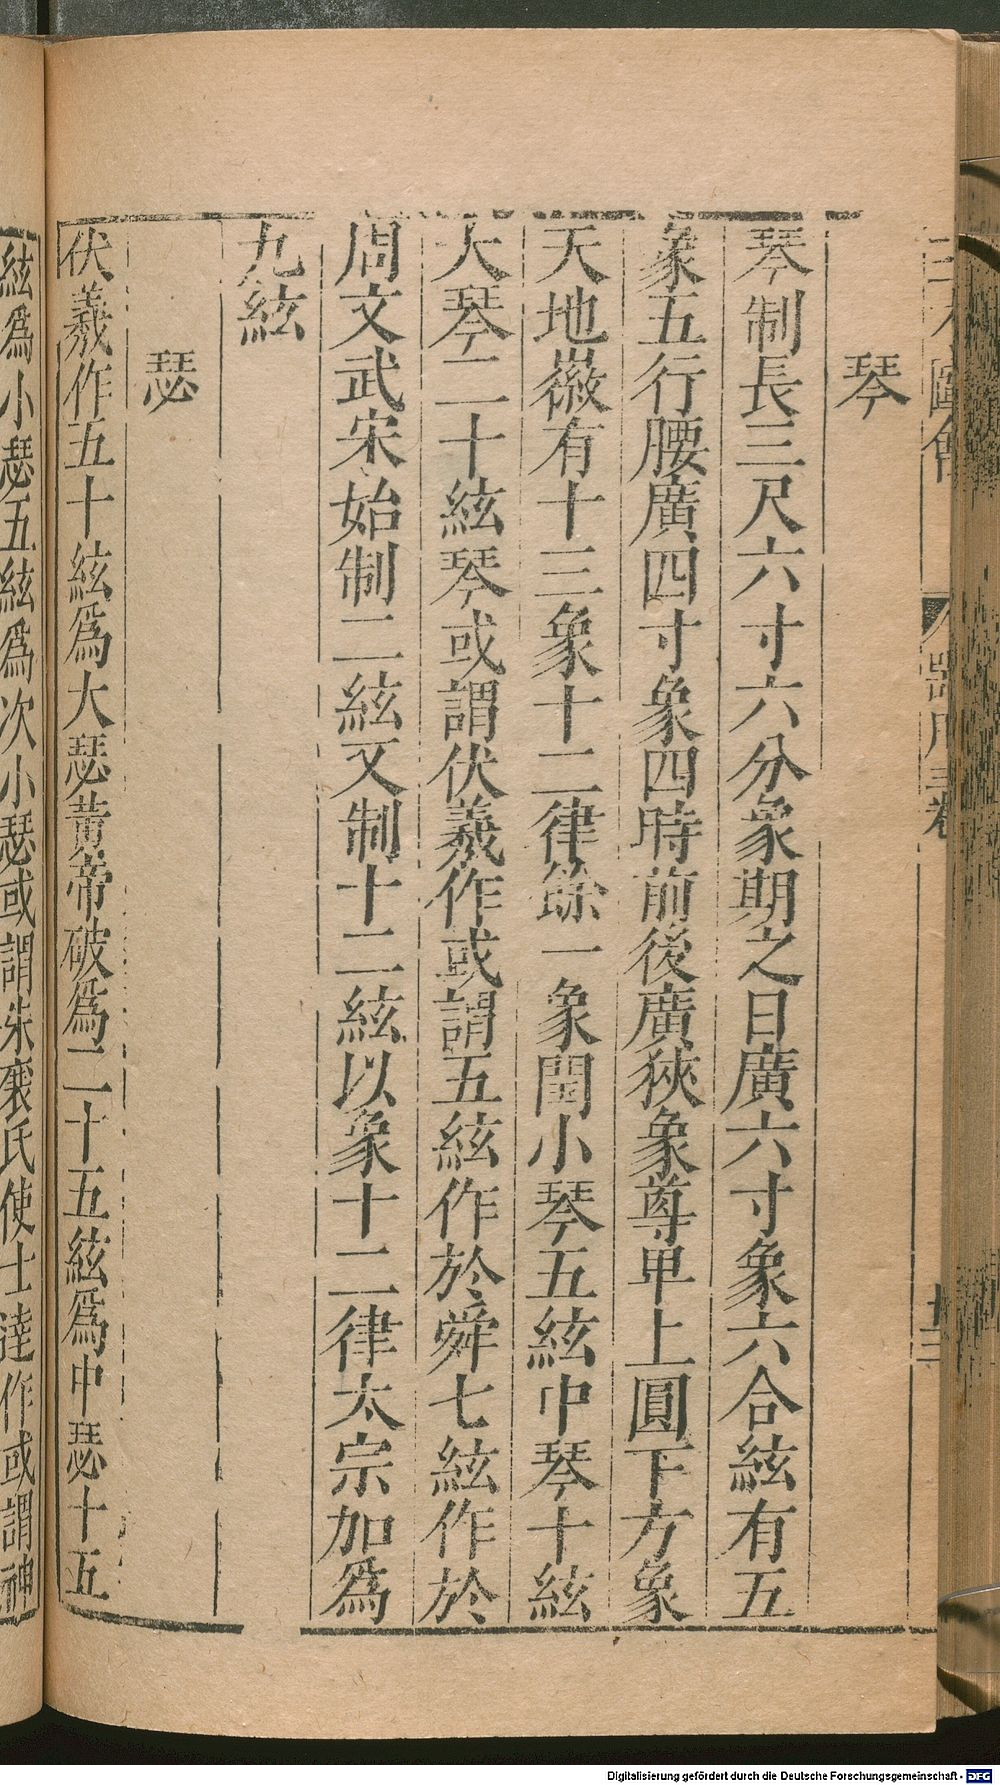 三才圖會 器用三卷 十三
琴
琴制長三尺六寸六分象期之日廣六寸象六合絃有五
象五行腰廣四寸象四時前後廣狹象尊甲上圓下方象
天地徽有十三象十二律餘一象閏小琴五絃中琴十絃
大琴二十絃琴或謂伏羲作或謂五絃作於舜七絃作於
周文武宋始制二絃又制十二絃以象十二律太宗加爲
九絃
瑟
伏羲作五十絃爲大瑟黃帝破爲二十五絃爲中瑟十五
絃爲小瑟五絃爲次小瑟或謂朱襄氏使士達作或謂神
Digitalisierung gefördert durch die Deutsche Forschungsgemeinschaft - DFG